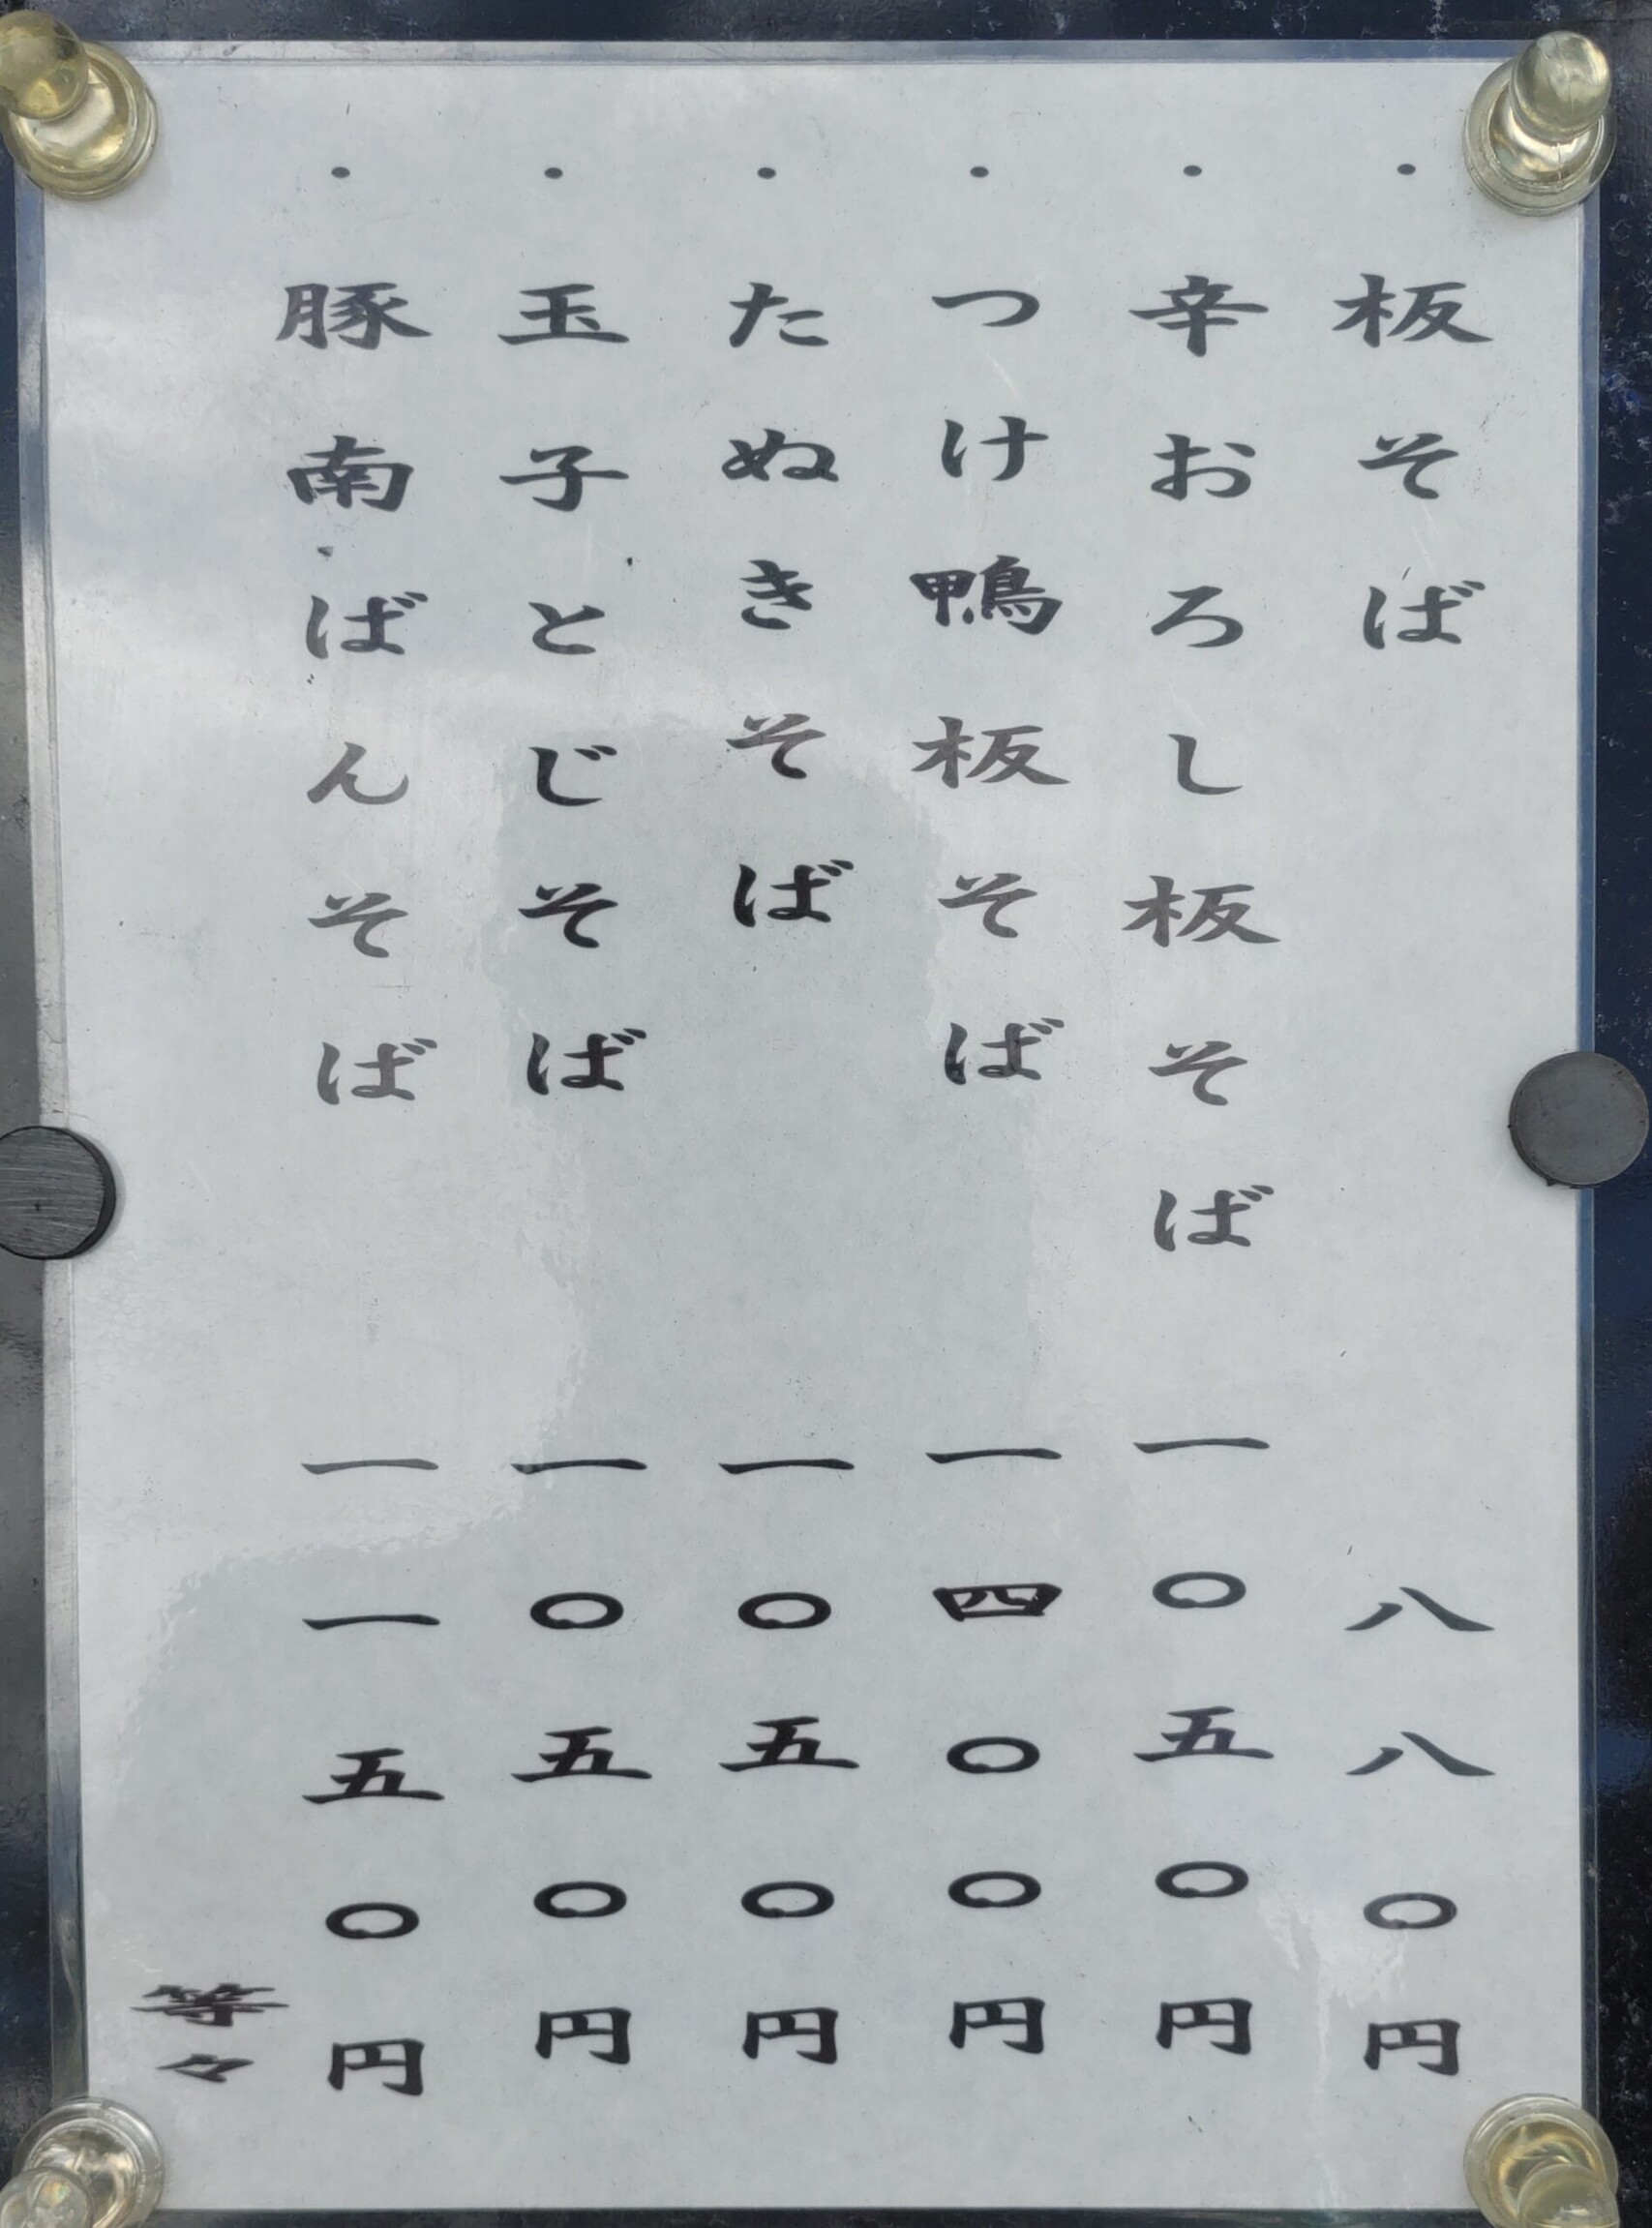 ・板そば 八八〇円
・辛おろし板そば 一〇五〇円
・つけ鴨板そば 一四〇〇円
・たぬきそば 一〇五〇円
・玉子とじそば 一〇五〇円
・豚南ばんそば 一一五〇円
等々